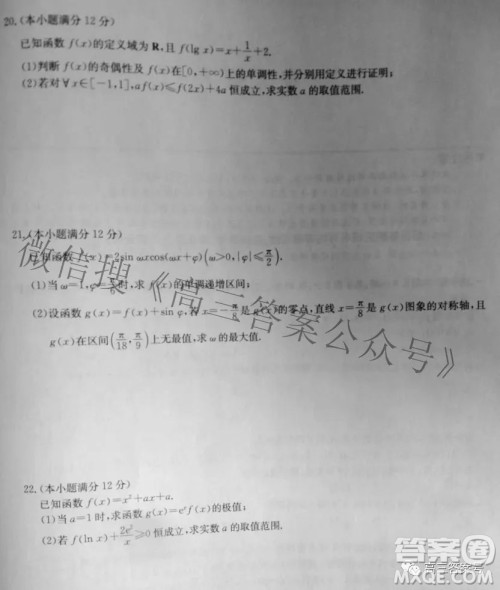 20.(本小题满分 12 分)
已知函数 f(x)的定义域为 R,且 f(lg x)=x+1/x+2.
(1)判断 f(x)的奇偶性及 f(x)在[0,+∞)上的单调性,并分别用定义进行证明;
(2)若对∀x∈[-1,1],af(x)≤f(2x)+4a 恒成立,求实数 a 的取值范围.
21.(本小题满分 12 分)
已知函数 f(x)=2sin ωxcos(ωx+φ)(ω>0,|φ|≤π/2).
(1)当 ω=1, 时,求 f(x)的单调递增区间;
(2)设函数 g(x)=f(x)+sin φ,若 x=-π/8是 g(x)的零点,直线 x=π/8是 g(x)图象的对称轴,且
g(x)在区间(π/18,π/9)上无最值,求 ω 的最大值.
22.(本小题满分 12 分)
已知函数 f(x)=x²+ax+a.
(1)当 a=1 时,求函数 g(x)=eˣf(x)的极值;
(2)若 f(ln x)+2e²/x≥0 恒成立,求实数 a 的取值范围.
微信搜《高三答案公众号》
答案圈
MXQE.COM